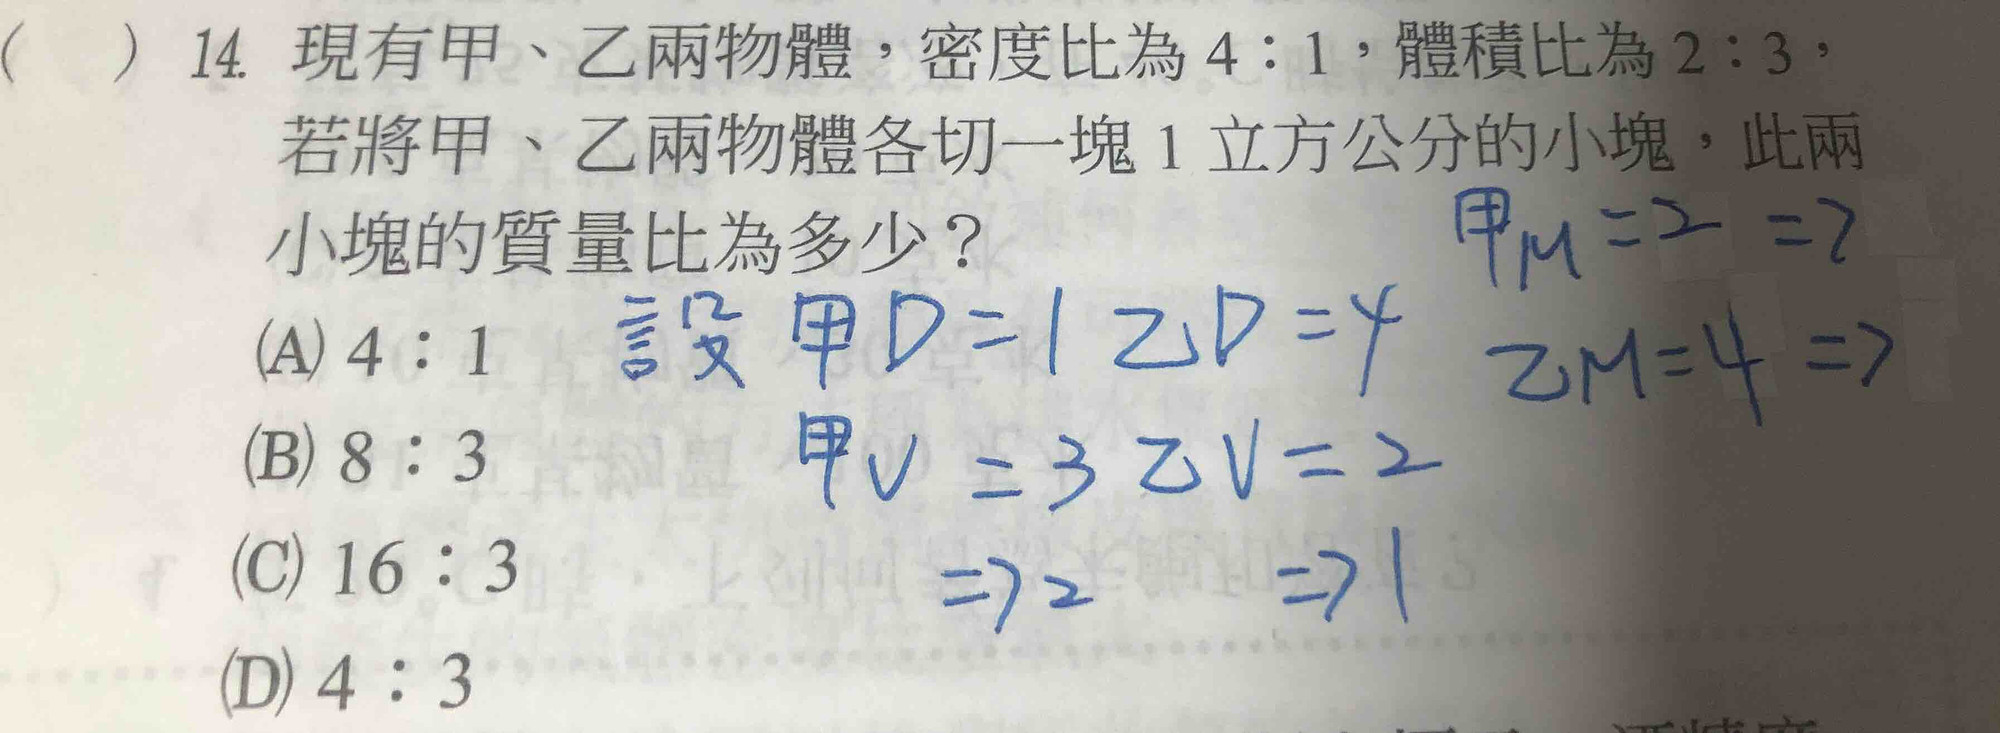 ( ) 14. 現有甲、乙兩物體，密度比為 4：1，體積比為 2：3，
若將甲、乙兩物體各切一塊 1 立方公分的小塊，此兩
小塊的質量比為多少？
甲M=2 =>
乙M=4 =>
(A) 4：1
設 甲D=1 乙D=4
(B) 8：3
甲V=3 乙V=2
(C) 16：3
=>2 =>1
(D) 4：3